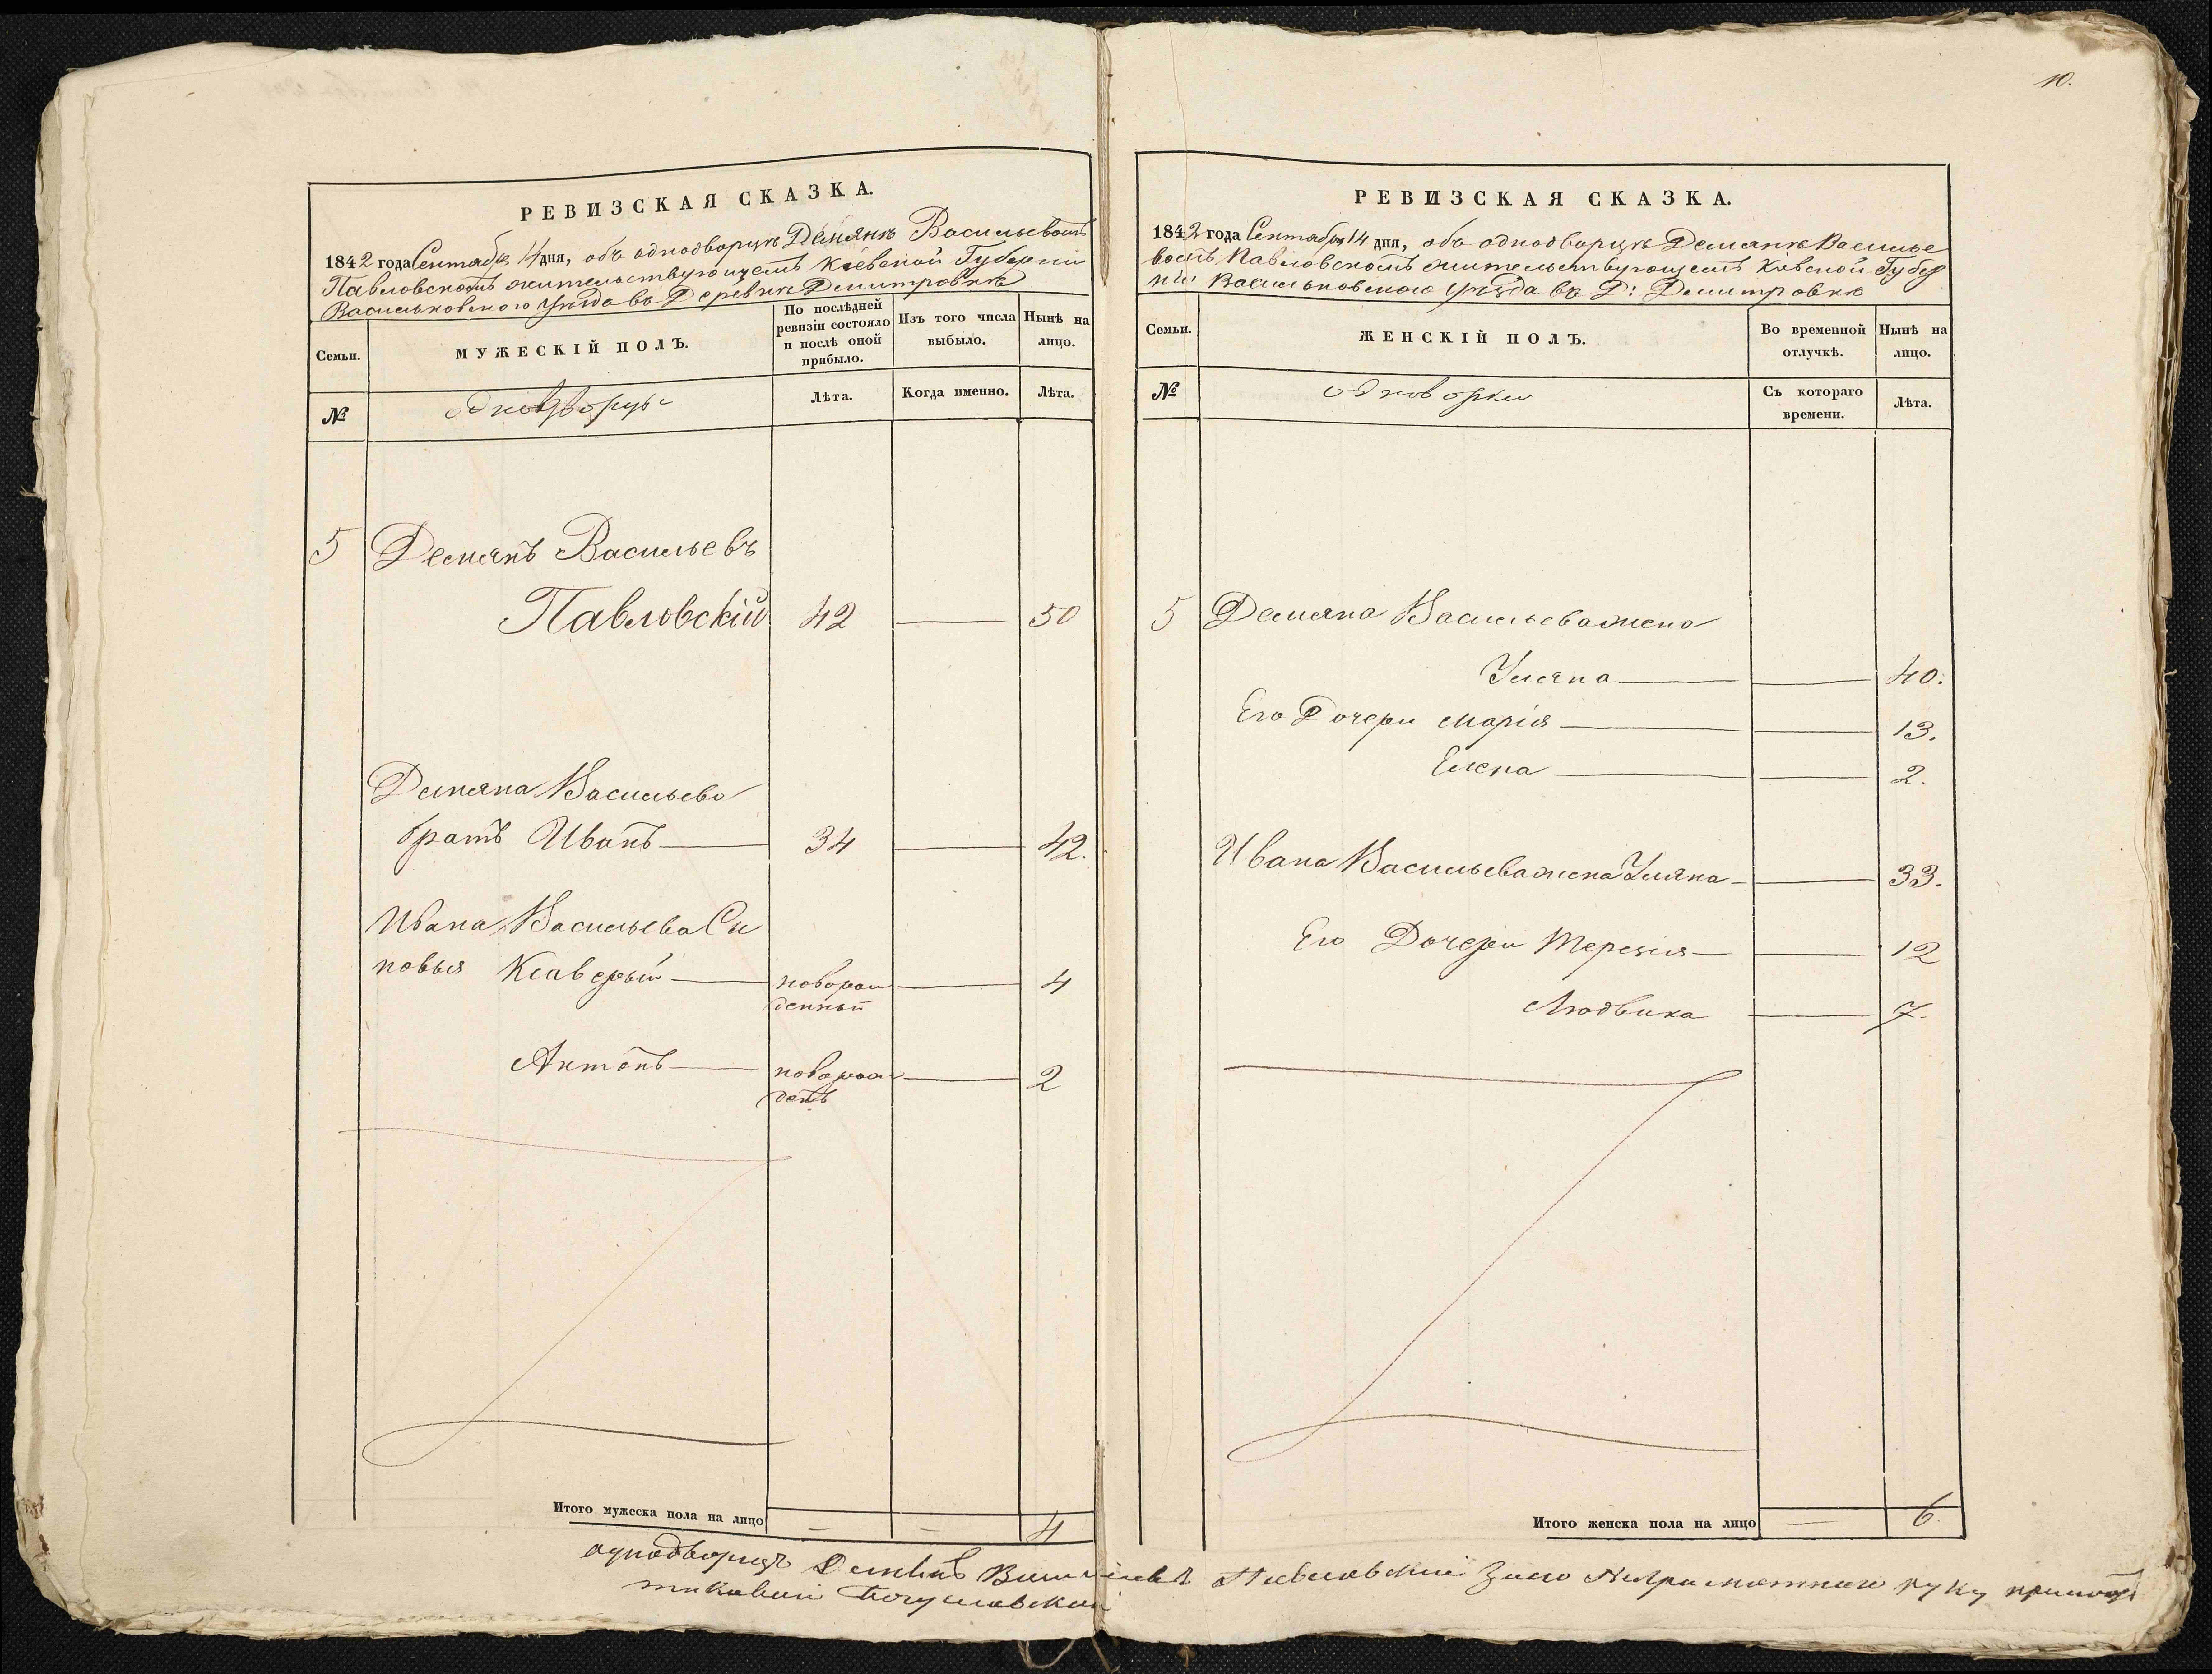 10.
РЕВИЗСКАЯ СКАЗКА.
1842 года Сентября 14 дня, объ однодворцѣ Демянѣ Васильевомъ
Павловскомъ жительствующемъ Кіевской Губерніи
Васильковскаго Уѣзда въ Деревнѣ Демитровкѣ
Семьи.
МУЖЕСКІЙ ПОЛЪ.
По послѣдней
ревизіи состояло
и послѣ оной
прибыло.
Изъ того числа
выбыло.
Нынѣ на
лицо.
№
однодворцы
Лѣта.
Когда именно.
Лѣта.
5 Демянъ Васильевъ
Павловскій 42 — 50
Демяна Васильева
братъ Иванъ — 34 — 42.
Ивана Васильева Сы
новья Ксаверый — новорож
денный — 4
Антонъ — новорож
денъ — 2
Итого мужеска пола на лицо — — 4
РЕВИЗСКАЯ СКАЗКА.
1842 года Сентября 14 дня, объ однодворцѣ Демянѣ Василье
вомъ Павловскомъ жительствующемъ Кіевской Губер
ніи Васильковскаго Уѣзда въ Д: Демитровкѣ
Семьи.
ЖЕНСКІЙ ПОЛЪ.
Во временной
отлучкѣ.
Нынѣ на
лицо.
№
одноворки
Съ котораго
времени.
Лѣта.
5 Демяна Васильева жена
Уляна — — 40.
Его Дочери Марія — — 13.
Елена — — 2.
Ивана Васильева жена Уляна — — 33.
Его Дочери Терезія — — 12
Людвика — 7.
Итого женска пола на лицо — 6.
однодворцъ Демянъ Васильевъ Павловскій За него Неграмотнаго руку
Богуславскій